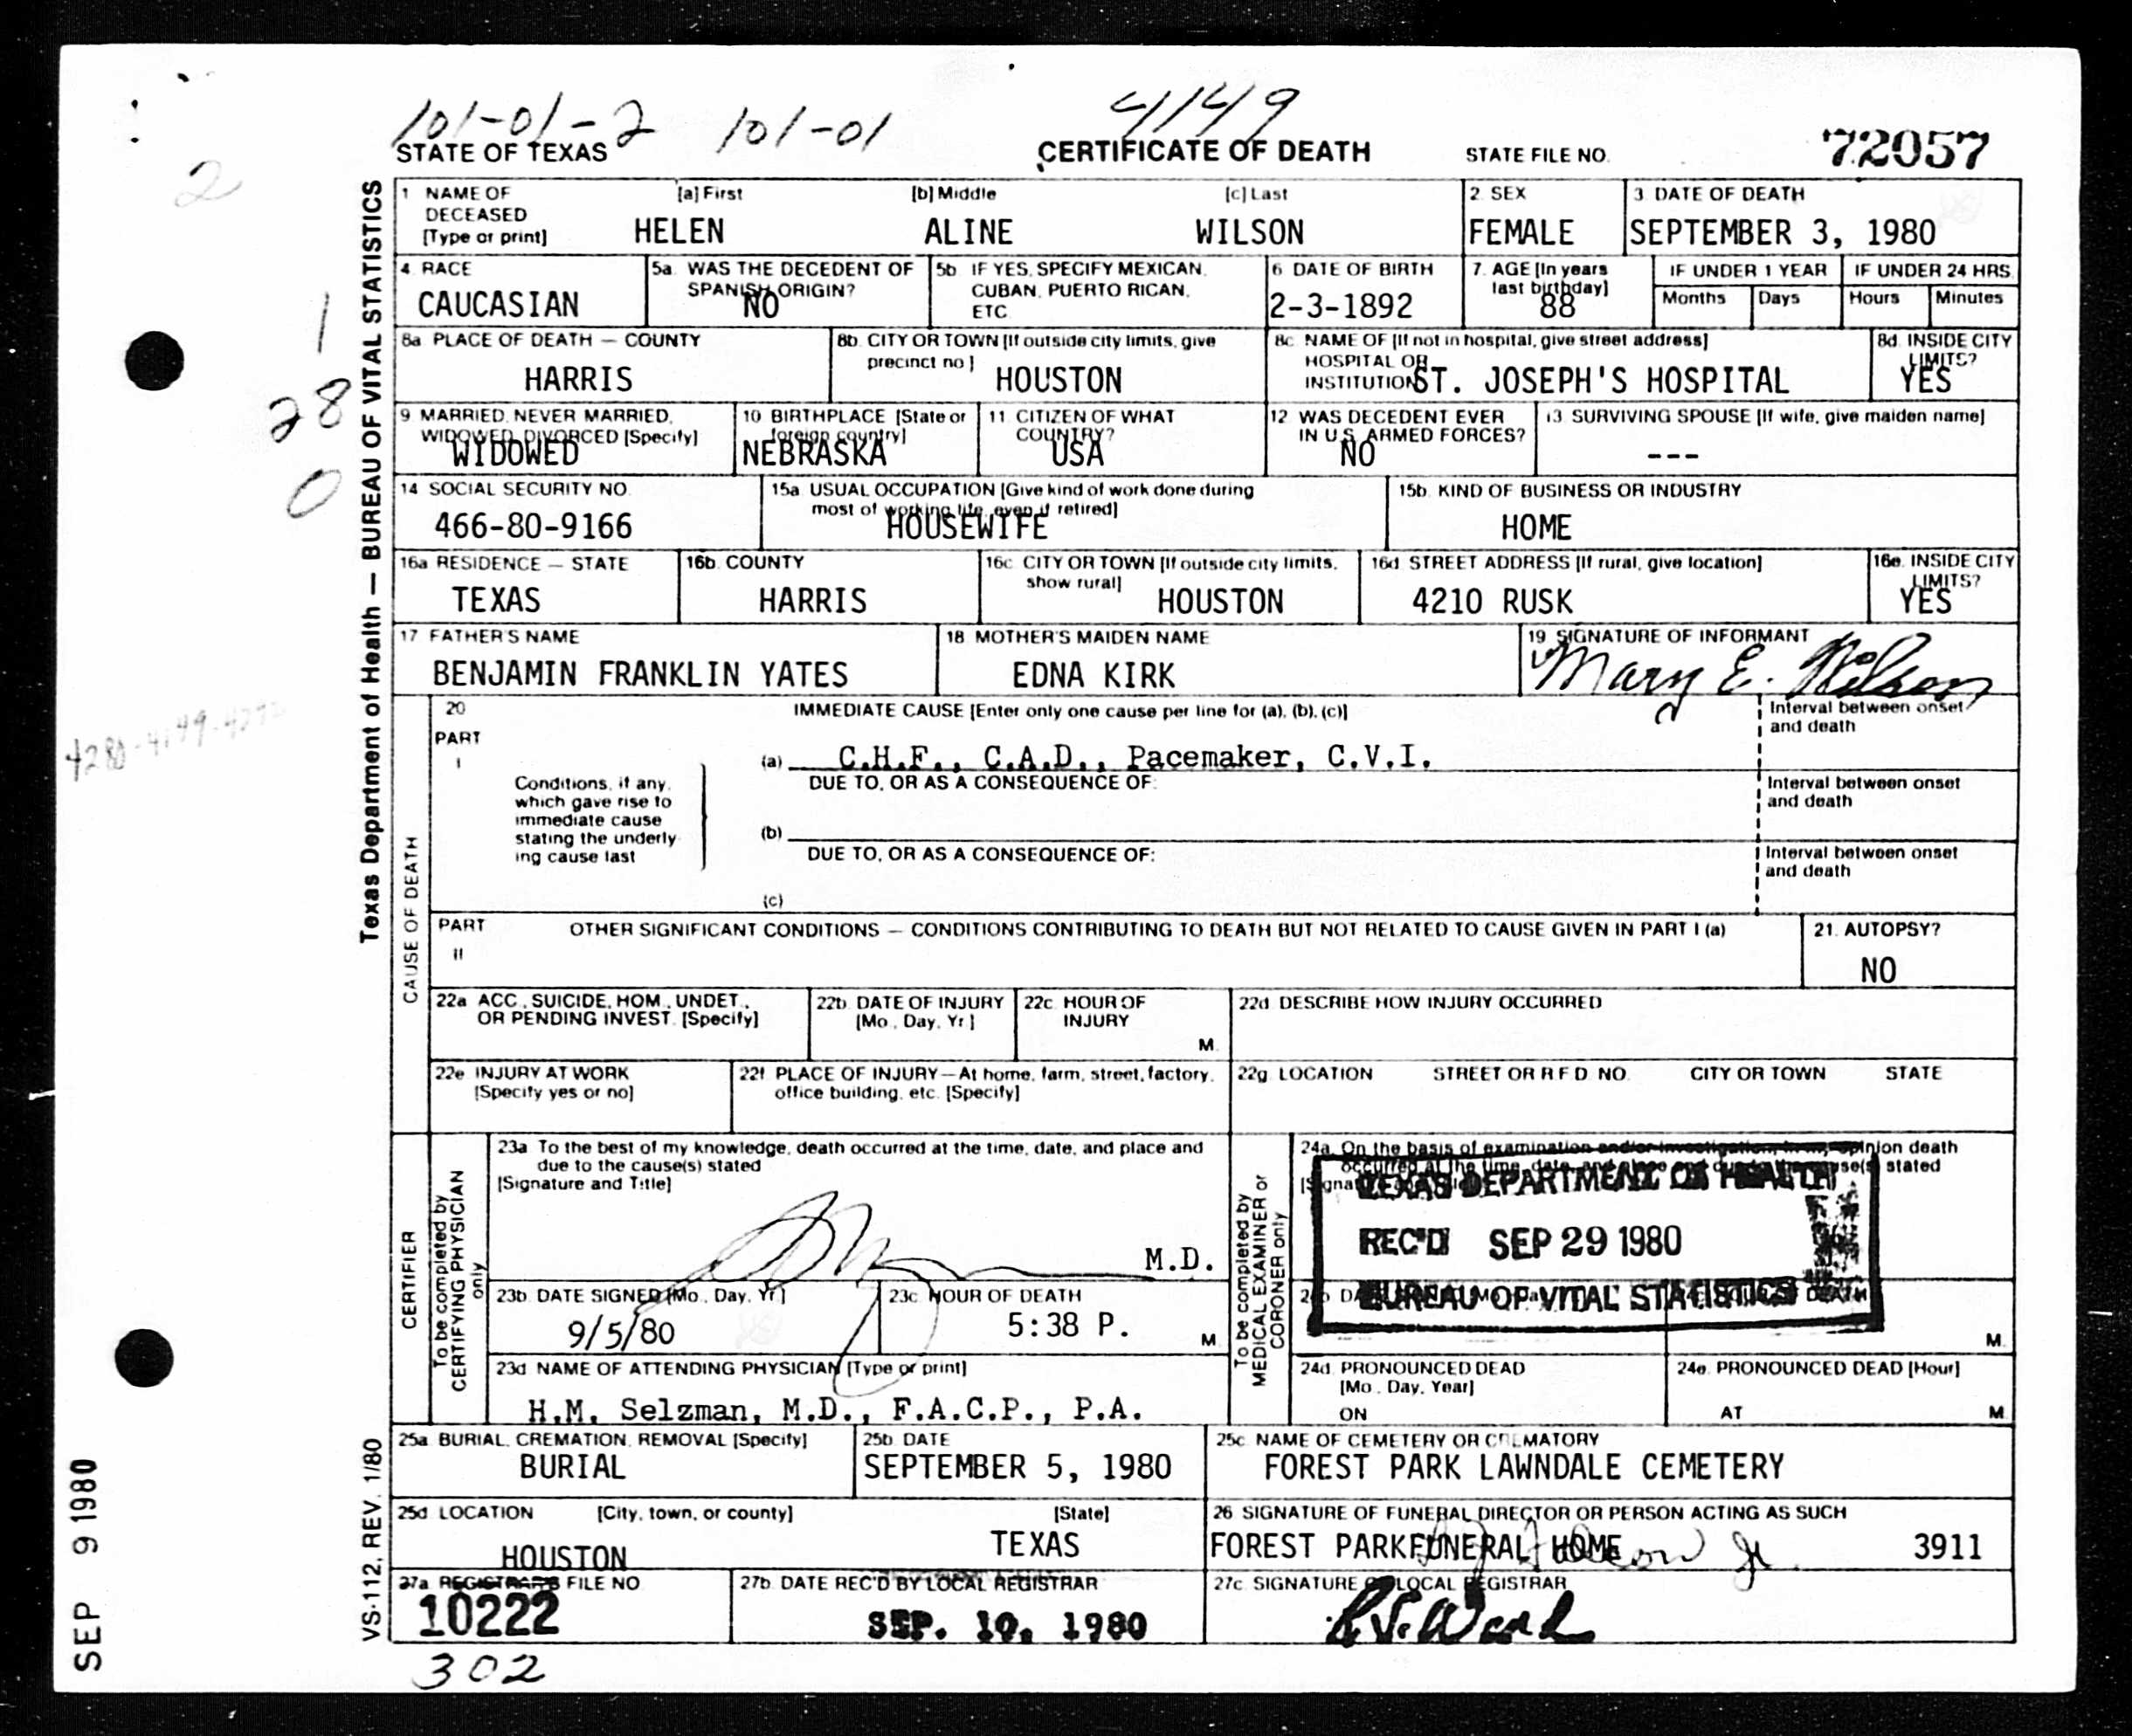 101-01-2 101-01 4149
STATE OF TEXAS CERTIFICATE OF DEATH STATE FILE NO. 72057
2
1
28
0
4280-4149-
SEP 9 1980
Texas Department of Health — BUREAU OF VITAL STATISTICS
VS-112, REV. 1/80
1 NAME OF DECEASED [Type or print] [a] First [b] Middle [c] Last
HELEN ALINE WILSON
2. SEX
FEMALE
3. DATE OF DEATH
SEPTEMBER 3, 1980
4 RACE
CAUCASIAN
5a. WAS THE DECEDENT OF
SPANISH ORIGIN?
NO
5b. IF YES, SPECIFY MEXICAN,
CUBAN, PUERTO RICAN,
ETC.
6 DATE OF BIRTH
2-3-1892
7. AGE [In years
last birthday]
88
IF UNDER 1 YEAR
Months Days
IF UNDER 24 HRS.
Hours Minutes
8a. PLACE OF DEATH — COUNTY
HARRIS
8b. CITY OR TOWN [If outside city limits, give
precinct no]
HOUSTON
8c. NAME OF [If not in hospital, give street address]
HOSPITAL OR
INSTITUTION
ST. JOSEPH'S HOSPITAL
8d. INSIDE CITY
LIMITS?
YES
9 MARRIED, NEVER MARRIED,
WIDOWED, DIVORCED [Specify]
WIDOWED
10 BIRTHPLACE [State or
foreign country]
NEBRASKA
11 CITIZEN OF WHAT
COUNTRY?
USA
12 WAS DECEDENT EVER
IN U.S. ARMED FORCES?
NO
13 SURVIVING SPOUSE [If wife, give maiden name]
---
14 SOCIAL SECURITY NO.
466-80-9166
15a. USUAL OCCUPATION [Give kind of work done during
most of working life, even if retired]
HOUSEWIFE
15b. KIND OF BUSINESS OR INDUSTRY
HOME
16a RESIDENCE — STATE
TEXAS
16b. COUNTY
HARRIS
16c. CITY OR TOWN [If outside city limits,
show rural]
HOUSTON
16d. STREET ADDRESS [If rural, give location]
4210 RUSK
16e. INSIDE CITY
LIMITS?
YES
17 FATHER'S NAME
BENJAMIN FRANKLIN YATES
18 MOTHER'S MAIDEN NAME
EDNA KIRK
19 SIGNATURE OF INFORMANT
Mary E. Wilson
CAUSE OF DEATH
20
PART
I
IMMEDIATE CAUSE [Enter only one cause per line for (a), (b), (c)]
(a) C.H.F., C.A.D., Pacemaker, C.V.I.
Interval between onset
and death
Conditions, if any,
which gave rise to
immediate cause
stating the underly-
ing cause last
DUE TO, OR AS A CONSEQUENCE OF:
(b)
Interval between onset
and death
DUE TO, OR AS A CONSEQUENCE OF:
(c)
Interval between onset
and death
PART
II
OTHER SIGNIFICANT CONDITIONS — CONDITIONS CONTRIBUTING TO DEATH BUT NOT RELATED TO CAUSE GIVEN IN PART I (a)
21. AUTOPSY?
NO
22a ACC., SUICIDE, HOM., UNDET.,
OR PENDING INVEST. [Specify]
22b. DATE OF INJURY
[Mo., Day, Yr.]
22c. HOUR OF
INJURY
M.
22d DESCRIBE HOW INJURY OCCURRED
22e INJURY AT WORK
[Specify yes or no]
22f. PLACE OF INJURY—At home, farm, street, factory,
office building, etc. [Specify]
22g. LOCATION STREET OR R.F.D. NO. CITY OR TOWN STATE
CERTIFIER
To be completed by
CERTIFYING PHYSICIAN
only
23a To the best of my knowledge, death occurred at the time, date, and place and
due to the cause(s) stated
[Signature and Title]
M.D.
23b. DATE SIGNED [Mo., Day, Yr.]
9/5/80
23c. HOUR OF DEATH
5:38 P. M.
23d NAME OF ATTENDING PHYSICIAN [Type or print]
H.M. Selzman, M.D., F.A.C.P., P.A.
To be completed by
MEDICAL EXAMINER or
CORONER only
24a. On the basis of examination and/or investigation, in my opinion death
occurred at the time, date, and place and due to the cause(s) stated
TEXAS DEPARTMENT OF HEALTH
REC'D SEP 29 1980
BUREAU OF VITAL STATISTICS
M.
24d. PRONOUNCED DEAD
[Mo., Day, Year]
ON
24e. PRONOUNCED DEAD [Hour]
AT M.
25a. BURIAL, CREMATION, REMOVAL [Specify]
BURIAL
25b. DATE
SEPTEMBER 5, 1980
25c. NAME OF CEMETERY OR CREMATORY
FOREST PARK LAWNDALE CEMETERY
25d. LOCATION [City, town, or county] [State]
HOUSTON TEXAS
26 SIGNATURE OF FUNERAL DIRECTOR OR PERSON ACTING AS SUCH
FOREST PARK FUNERAL HOME Jr. 3911
27a. REGISTRAR'S FILE NO.
10222
27b. DATE REC'D BY LOCAL REGISTRAR
SEP. 10, 1980
27c. SIGNATURE OF LOCAL REGISTRAR
302